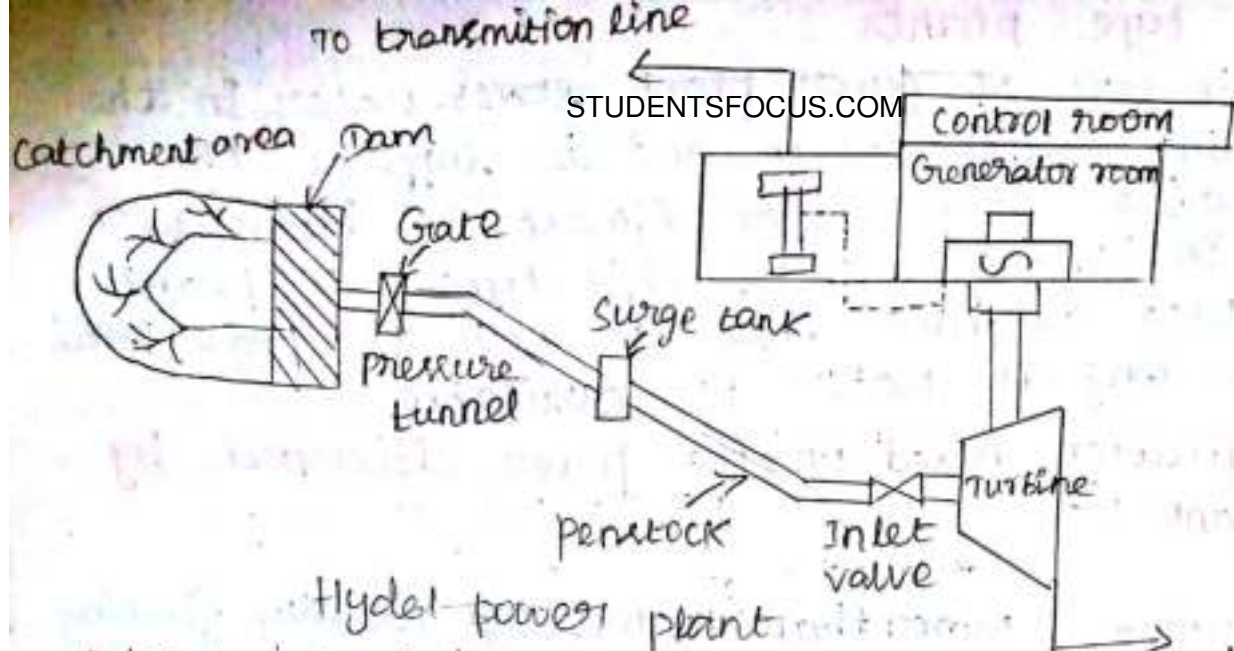 To transmition line
STUDENTSFOCUS.COM
Control room
Catchment area
Dam
Generator room
Gate
Surge tank
pressure
tunnel
Turbine
penstock
Inlet
valve
Hydel power plant